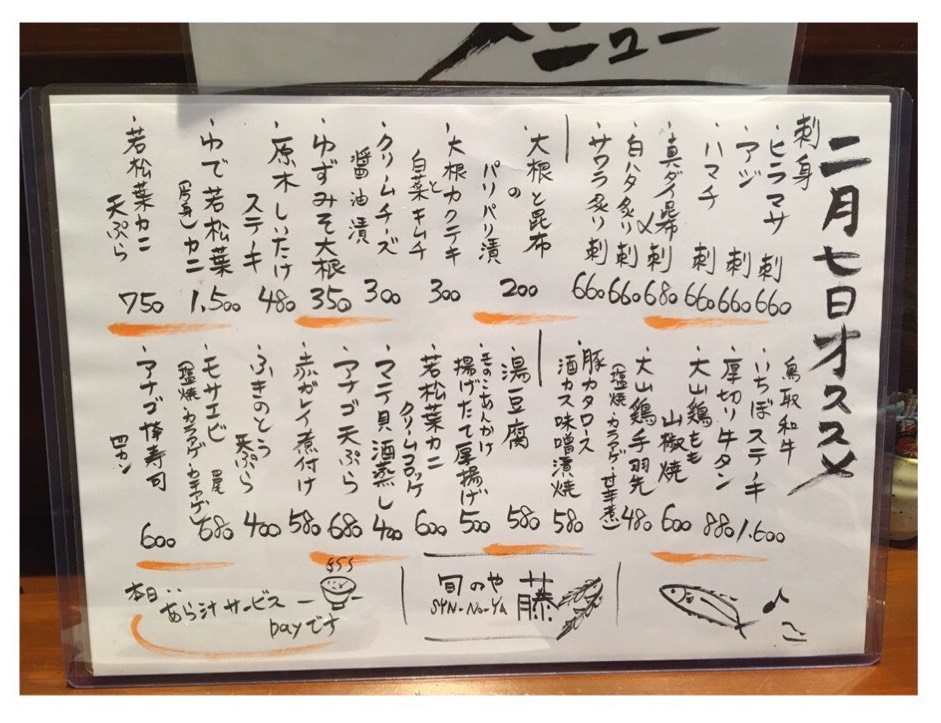 メニュー
二月七日オススメ
刺身
・ヒラマサ 刺 660
・アジ 刺 660
・ハマチ 刺 660
・真ダイ昆布〆刺 680
・白ハタ炙り刺 660
・サワラ炙り刺 660
・大根と昆布
の
パリパリ漬 200
・大根カクテキ
と
白菜キムチ 300
・クリームチーズ
醤油漬 300
・ゆずみそ大根 350
・原木しいたけ
ステーキ 480
・ゆで若松葉
(片身)カニ 1.500
・若松葉カニ
天ぷら 750
鳥取和牛
・いちぼステーキ 1.600
・厚切り牛タン 880
・大山鶏もも
山椒焼 600
・大山鶏手羽先
(塩焼・カラアゲ・甘辛煮) 480
・豚カタロース
酒カス味噌漬焼 580
・湯豆腐 580
・きのこあんかけ
揚げたて厚揚げ 500
・若松葉カニ
クリームコロッケ 600
・マテ貝酒蒸し 400
・アナゴ天ぷら 680
・赤ガレイ煮付け 580
・ふきのとう
天ぷら 400
・モサエビ
(塩焼・カラアゲ・) 680
・アナゴ棒寿司
四カン 600
旬のや 藤
SYN-No-YA
本日‥
あら汁サービス
Dayです